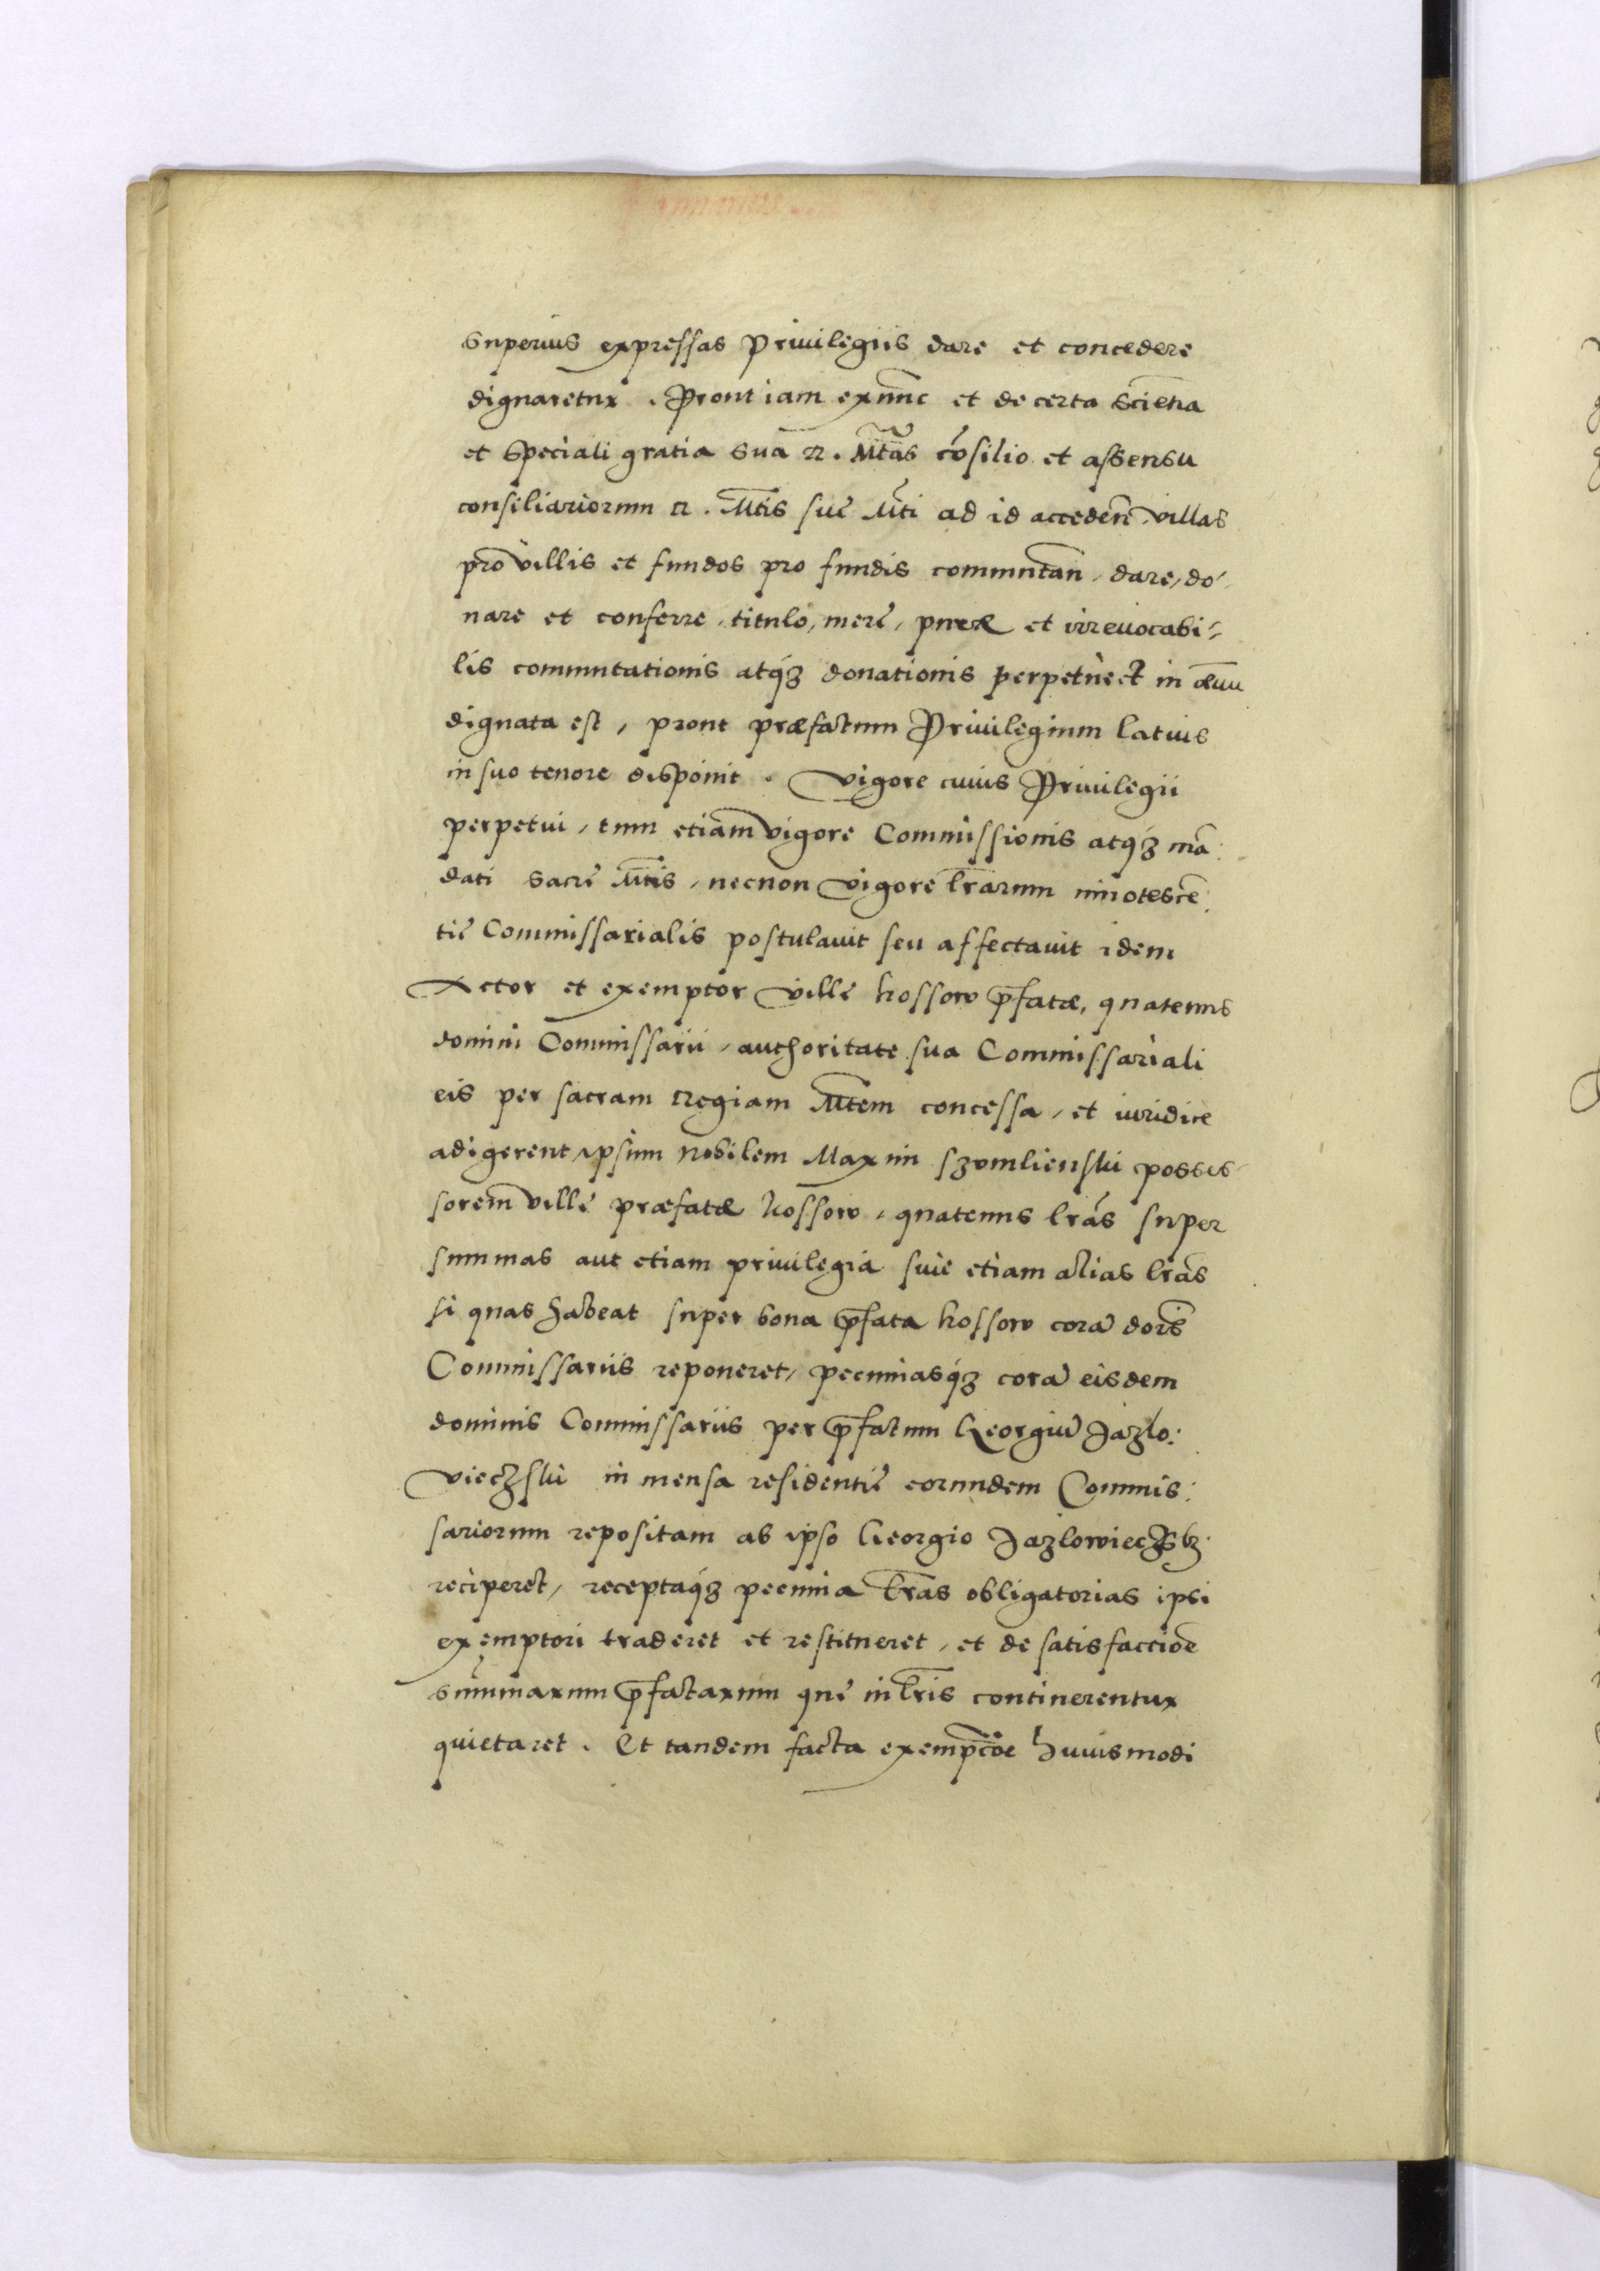 superius expressas Priuilegiis dare et concedere
dignaretur. Prout iam exnunc et de certa scientia
et speciali gratia sua R. Mtas cõsilio et assensu
consiliariorum R. Mtis sue Mti ad id acceden̄. villas
pro villis et fundos pro fundis commutan̄, dare, do-
nare et conferre, titulo, mere, puræ et irreuocabi-
lis commutationis atq3 donationis perpetue et in æuū
dignata est, prout præfatum Priuilegium latius
in suo tenore disponit. Vigore cuius Priuilegii
perpetui, tum etiam vigore Commissionis atq3 mā:
dati sacre Mtis, necnon vigore lrārum innotescē:
tie Commissarialis postulauit seu affectauit idem
Actor et exemptor ville kossow p̄fatæ, quatenus
domini Commissarii, authoritate sua Commissariali
eis per sacram Regiam Mtem concessa, et iuridice
adigerent ipsum Nobilem Maxim Szomlienski posses-
sorem ville præfatæ kossow, quatenus lrās super
summas aut etiam priuilegia siue etiam alias lrās
si quas habeat super bona p̄fata kossow corā dom̄is
Commissariis reponeret, pecuniasq3 corā eisdem
dominis Commissariis per p̄fatum Georgiū Jazlo:
vieczski in mensa residentie eorundem Commis:
sariorum repositam ab ipso Georgio Jazlowieczsk
reciperet, receptaq3 pecunia lrās obligatorias ipsi
exemptori traderet et restitueret, et de satisfactiōe
summarum p̄fatarum que in lrīs continerentur
quietaret. Et tandem facta exempc̄oe huiusmodi